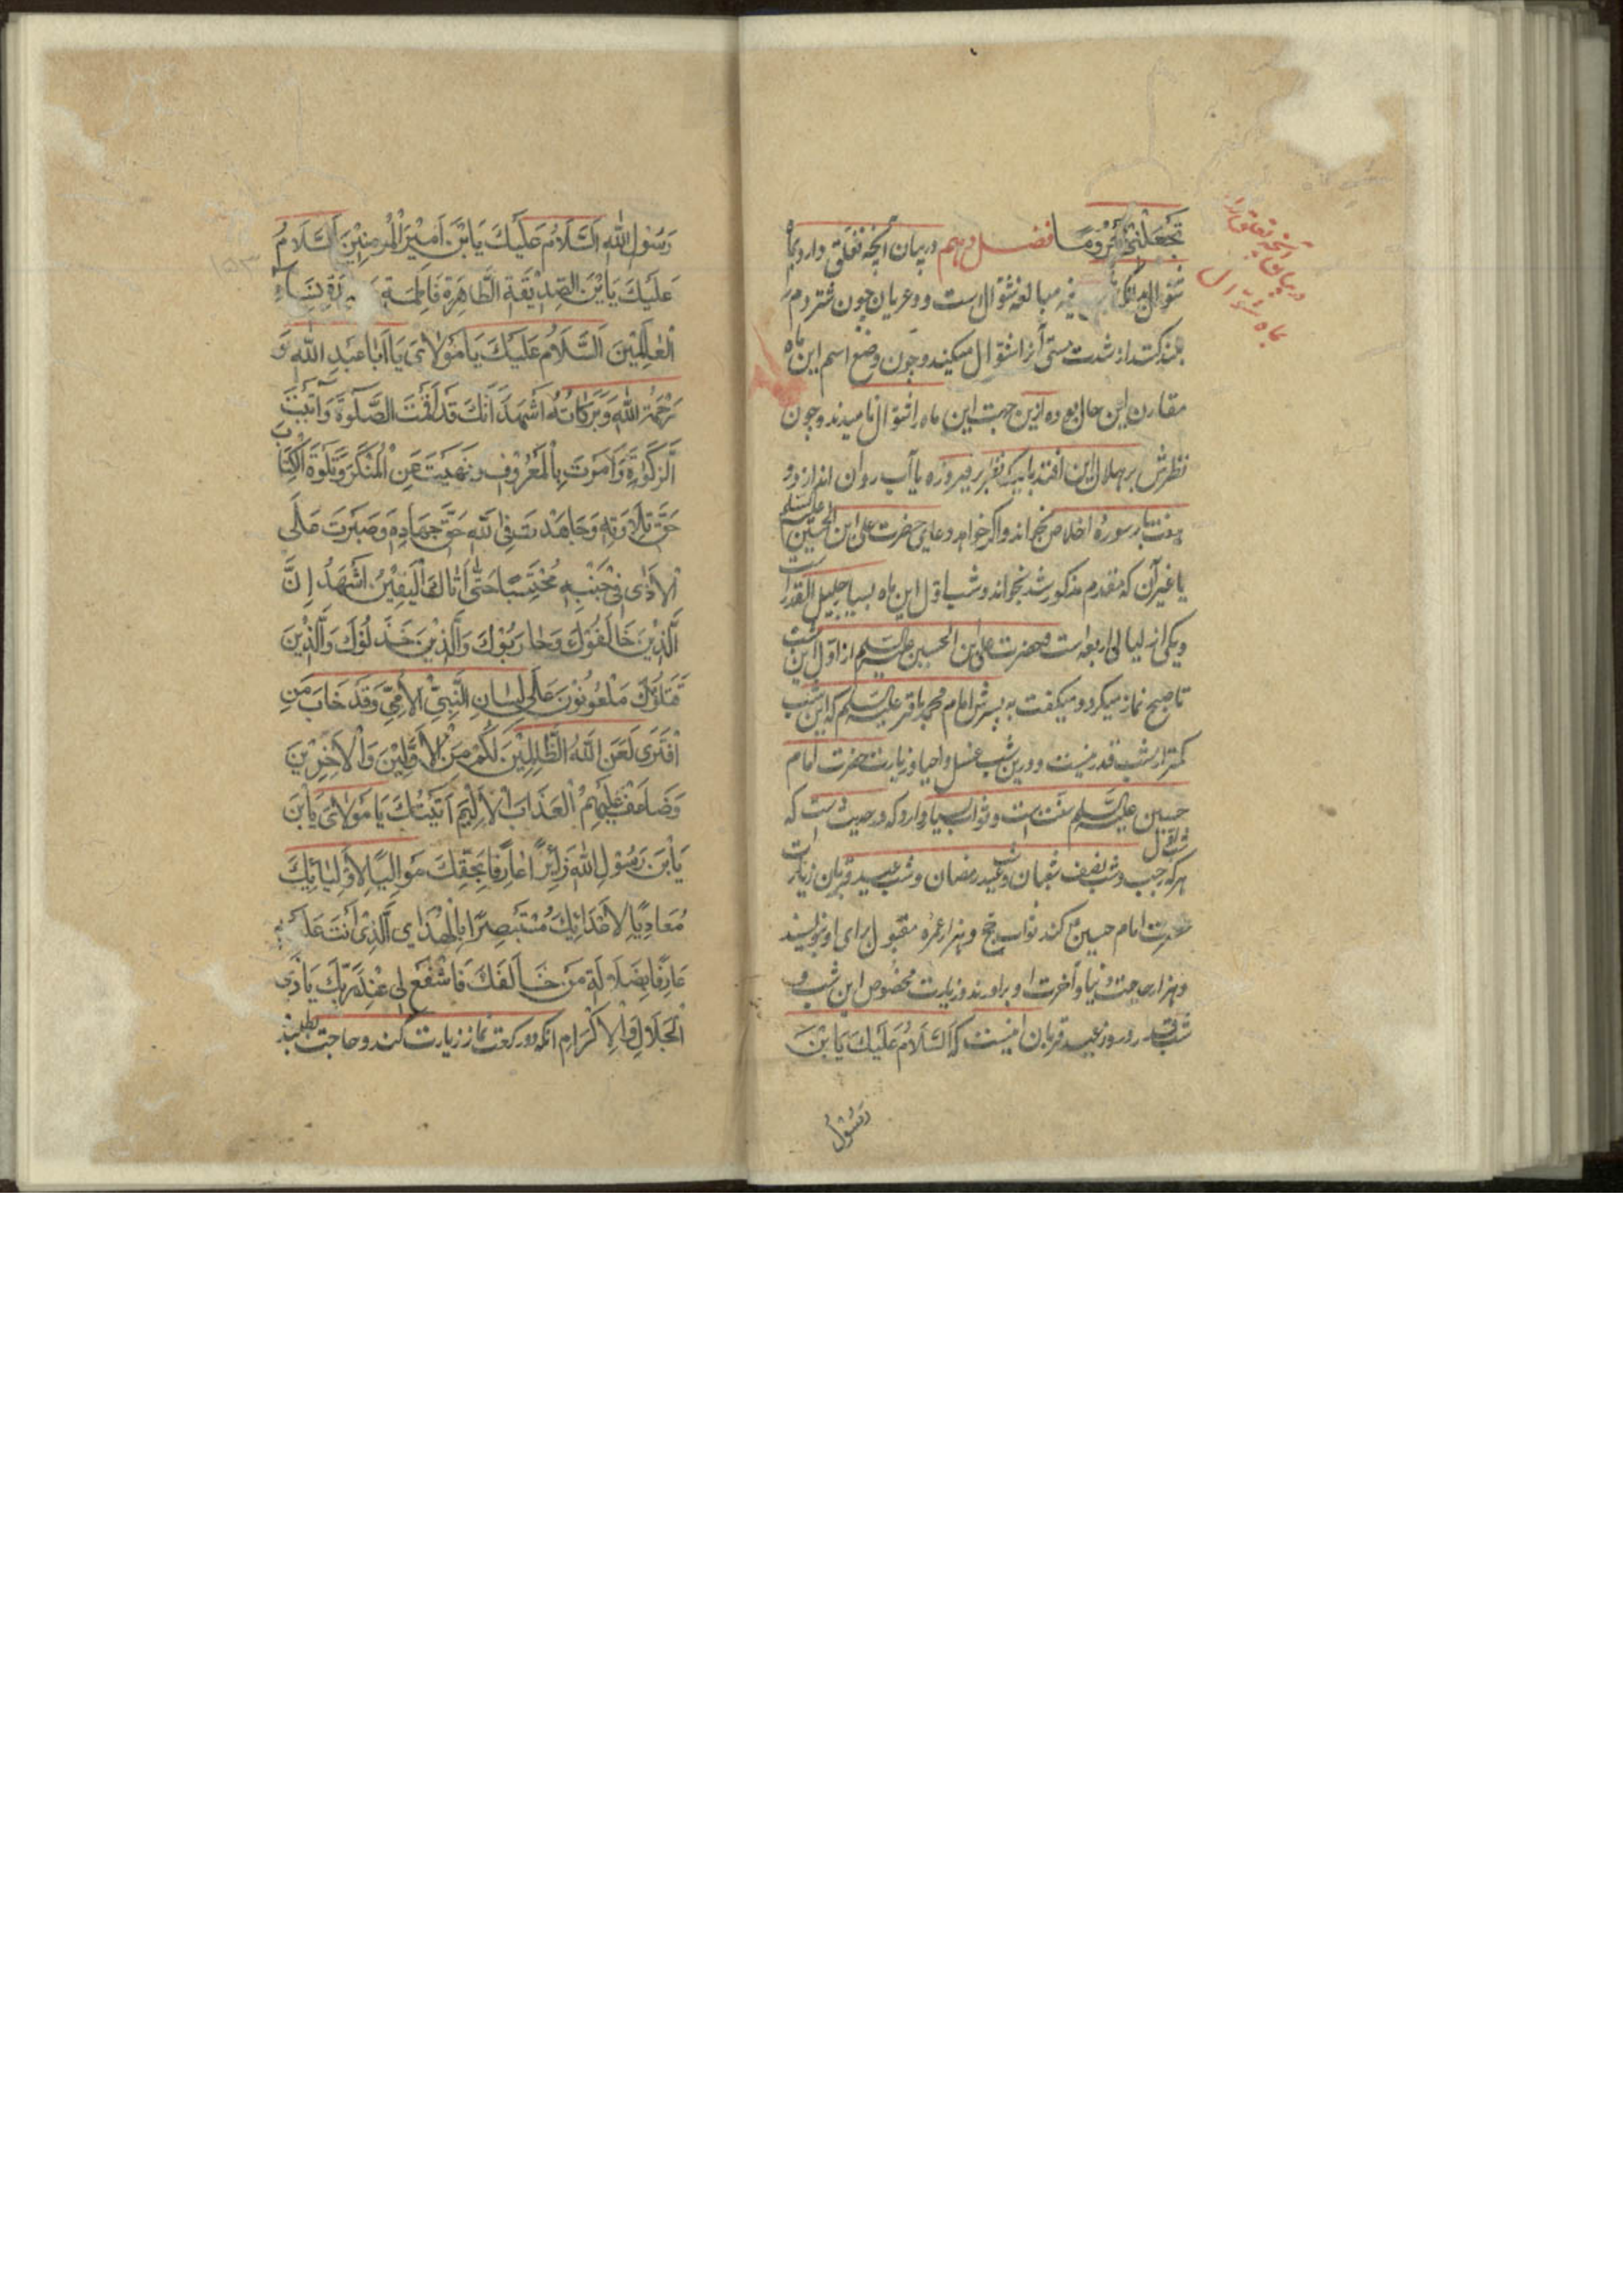 تَجْعَلْنی مَحْرُومًا فصل دهم در بیان آنچه تعلق دارد بماه
شوال بدانکه فیه مبالغه شوال است و عربان چون شتر دم را
بلند کند از شدت مستی آنرا شوال میگویند و چون وضع اسم این ماه
مقارن این حال بوده ازین جهت این ماه را شوال نامیدند و چون
نظرش بر هلال این افتد باید که نظر بر فیروزه یا آب روان اندازد و
هفت بار سوره اخلاص بخواند و اگر خواهد دعای حضرت علی ابن الحسین علیه السلم
یا غیر آن که مقدم مذکور شد بخواند و شب اول این ماه بسیار جلیل القدر است
و یکی از لیالی اربعه است و حضرت علی ابن الحسین علیه السلم از اول این شب
تا صبح نماز میکرد و میگفت به پسرش امام محمد باقر علیه السلم که این شب
کمتر از شب قدر نیست و درین شب غسل و احیا و زیارت حضرت امام
حسین علیه السلم سنت است و ثواب بسیار دارد که در حدیث است که
هر که شب اول رجب و شب نصف شعبان و شب عید رمضان و شب عید قربان زیارت
حضرت امام حسین کند ثواب حج و هزار عمره مقبول برای او بنویسند
و هزار حاجت دنیا و آخرت او برآورند و زیارت مخصوص این شب و
شب قدر و روز عید قربان اینست که اَلسَّلَامُ عَلَیْكَ یَا بْنَ
رَسُولِ
در بیان آنچه تعلق دارد
بماه شوال
رَسُوْلِ اللّٰهِ اَلسَّلَامُ عَلَیْكَ یَا بْنَ اَمِیْرِ الْمُؤْمِنِیْنَ اَلسَّلَامُ
عَلَیْكَ یَا بْنَ الصِّدِّیْقَةِ الطَّاهِرَةِ فَاطِمَةَ سَیِّدَةِ نِسَاءِ
الْعٰالَمِیْنَ اَلسَّلَامُ عَلَیْكَ یَا مَوْلَایَ یَا اَبَا عَبْدِ اللّٰهِ وَ
رَحْمَةُ اللّٰهِ وَبَرَکَاتُهُ اَشْهَدُ اَنَّكَ قَدْ اَقَمْتَ الصَّلٰوةَ وَآتَیْتَ
الزَّکٰوةَ وَاَمَرْتَ بِالْمَعْرُوْفِ وَنَهَیْتَ عَنِ الْمُنْکَرِ وَتَلَوْتَ الْکِتَابَ
حَقَّ تِلَاوَتِهِ وَجَاهَدْتَ فِی اللّٰهِ حَقَّ جِهَادِهِ وَصَبَرْتَ عَلَی
الْاَذٰی فِیْ جَنْبِهِ مُحْتَسِبًا حَتّٰی اَتَاكَ الْیَقِیْنُ اَشْهَدُ اِنَّ
الَّذِیْنَ خَالَفُوْكَ وَحَارَبُوْكَ وَالَّذِیْنَ خَذَلُوْكَ وَالَّذِیْنَ
قَتَلُوْكَ مَلْعُوْنُوْنَ عَلٰی لِسَانِ النَّبِیِّ الْاُمِّیِّ وَقَدْ خَابَ مَنِ
افْتَرَی لَعَنَ اللّٰهُ الظَّالِمِیْنَ لَکُمْ مِنَ الْاَوَّلِیْنَ وَالْاٰخِرِیْنَ
وَضَاعَفَ عَلَیْهِمُ الْعَذَابَ الْاَلِیْمَ اَتَیْتُكَ یَا مَوْلَایَ یَا بْنَ
یَا بْنَ رَسُوْلِ اللّٰهِ زَائِرًا عَارِفًا بِحَقِّكَ مَوَالِیًا لِاَوْلِیَائِكَ
مُعَادِیًا لِاَعْدَائِكَ مُسْتَبْصِرًا بِالْهُدَی الَّذِیْ اَنْتَ عَلَیْهِ
عَارِفًا بِضَلَالَةِ مَنْ خَالَفَكَ فَاشْفَعْ لِی عِنْدَ رَبِّكَ یَا ذَی
الْجَلَالِ وَالْاِکْرَامِ آنگه دو رکعت نماز زیارت کند و حاجت طلبد
۱۵۳